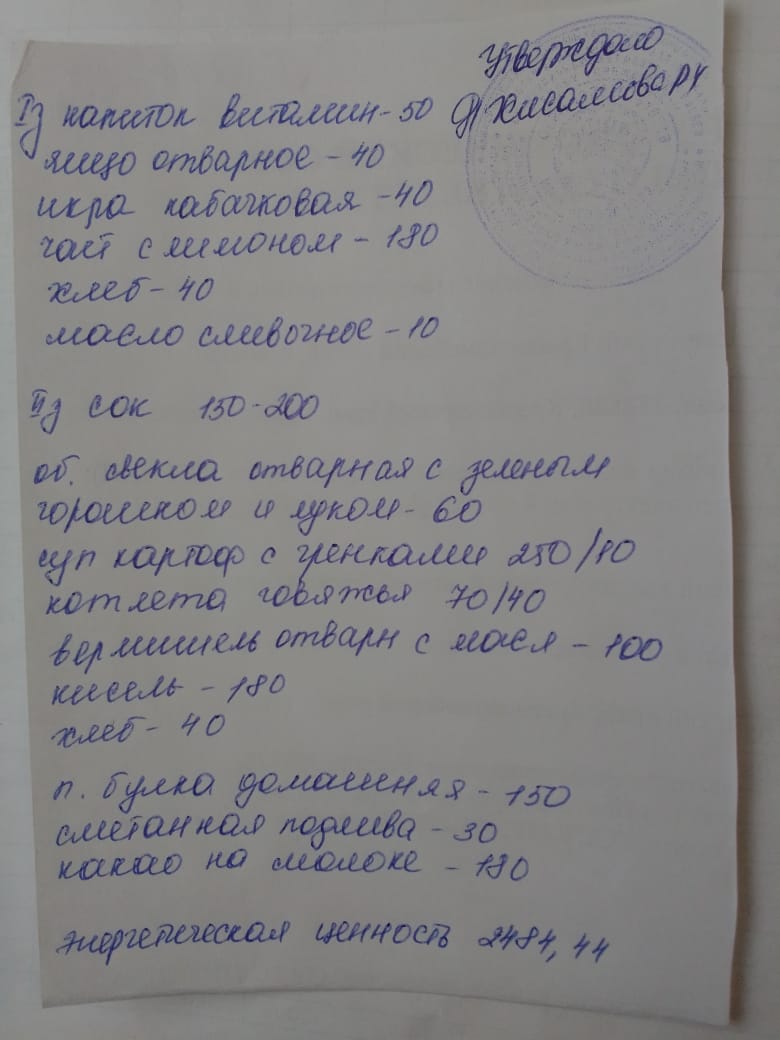 Утверждаю
Хисамова РУ
I з напиток витамин - 50
яйцо отварное - 40
икра кабачковая - 40
чай с лимоном - 180
хлеб - 40
масло сливочное - 10
II з сок 150-200
об. свекла отварная с зеленым
горошком и луком - 60
суп картоф с гренками 250/10
котлета говяжья 70/40
вермишель отварн с масл - 100
кисель - 180
хлеб - 40
п. булка домашняя - 150
сметанная подлива - 30
какао на молоке - 180
энергетическая ценность 2484,44